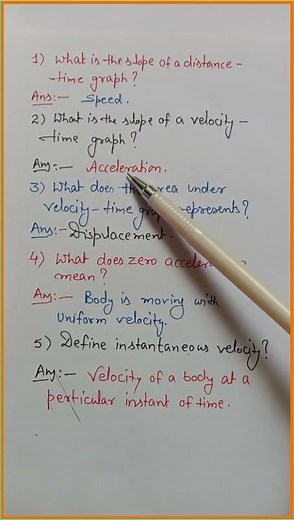 1) What is the slope of a distance-
-time graph?
Ans:- Speed.
2) What is the slope of a velocity-
-time graph?
Ans:- Acceleration.
3) What does the area under
velocity-time graph represents?
Ans:- Displacement.
4) What does zero
mean?
Ans:- Body is moving with
uniform velocity.
5) Define instantaneous velocity?
Ans:- Velocity of a body at a
perticular instant of time.